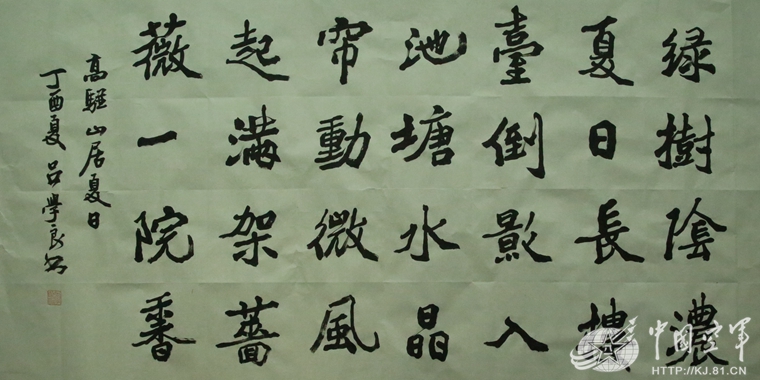 绿樹陰濃
夏日長樓
臺倒影入
池塘水晶
帘動微風
起满架薔
薇一院香
高駢山居夏日
丁酉夏 吕學良书
中国空军
HTTP://KJ.81.CN